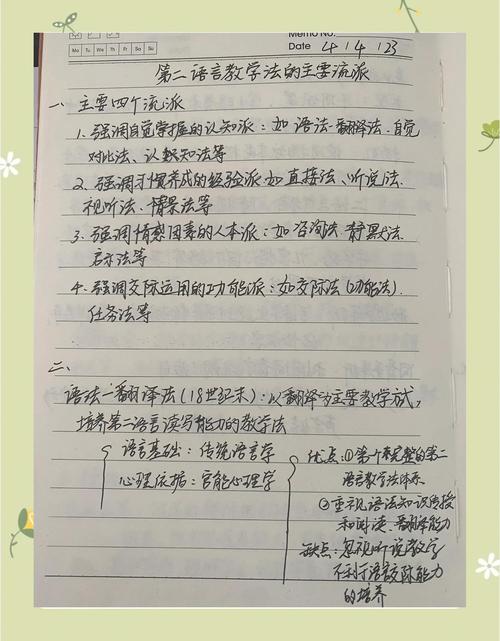 Memo No.
Mo Tu We Th Fr Sa Su
Date 4 / 4 / 23
第二语言教学法的主要流派
一、主要四个流派
1. 强调自觉掌握的认知派：如语法-翻译法、自觉
对比法、认知法等
2、强调习惯养成的经验派.如直接法、听说法、
视听法、情景法等
3. 强调情感因素的人本派：如咨询法、静默法、
启示法等
4. 强调交际运用的功能派：如交际法(功能法)、
任务法等
二、
语法—翻译法(18世纪末)：以翻译为主要教学式，
培养第二语言读写能力的教学法
语言基础：传统语言学
心理依据：官能心理学
优点：①第一个完整的第二
语言教学法体系
②重视语法知识传授
和阅读、翻译能力
缺点：忽视听说教学
不利于语言交际能力
的培养